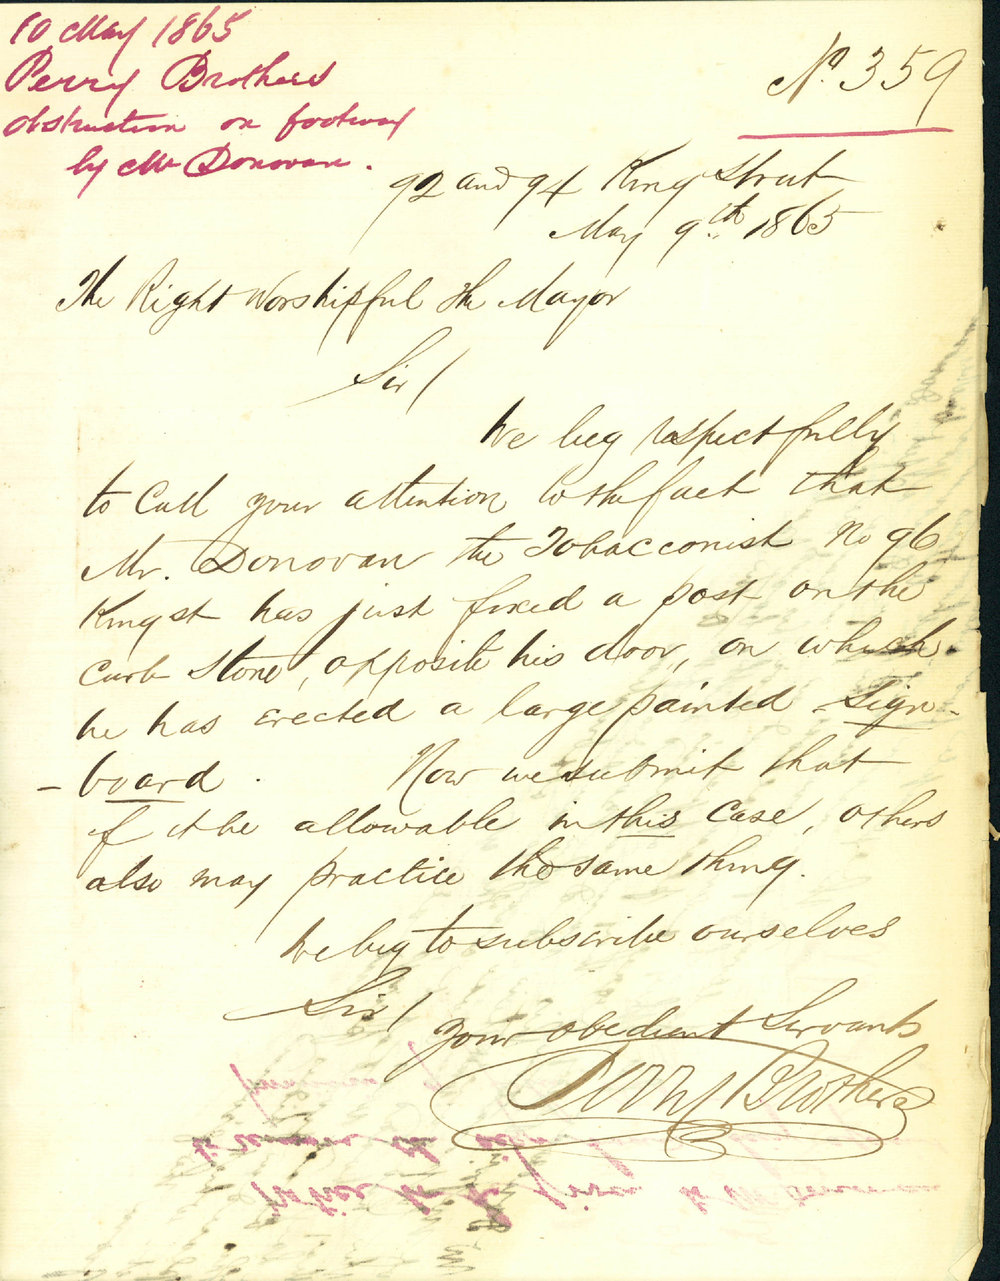 10 May 1865
Perry Brothers
obstruction on footway
by Mr Donovan.
No. 359
92 and 94 King Street
May 9th 1865
The Right Worshipful the Mayor
Sir/
We beg respectfully
to Call your attention to the fact that
Mr. Donovan the Tobacconist No 96
King st has just fixed a post on the
Curb Stone, opposite his door, on which
he has erected a large painted Sign-
-board. Now we submit that
if it be allowable in this Case, others
also may practice the same thing.
We beg to subscribe ourselves
Sir/
your obedient Servants
Perry Brothers